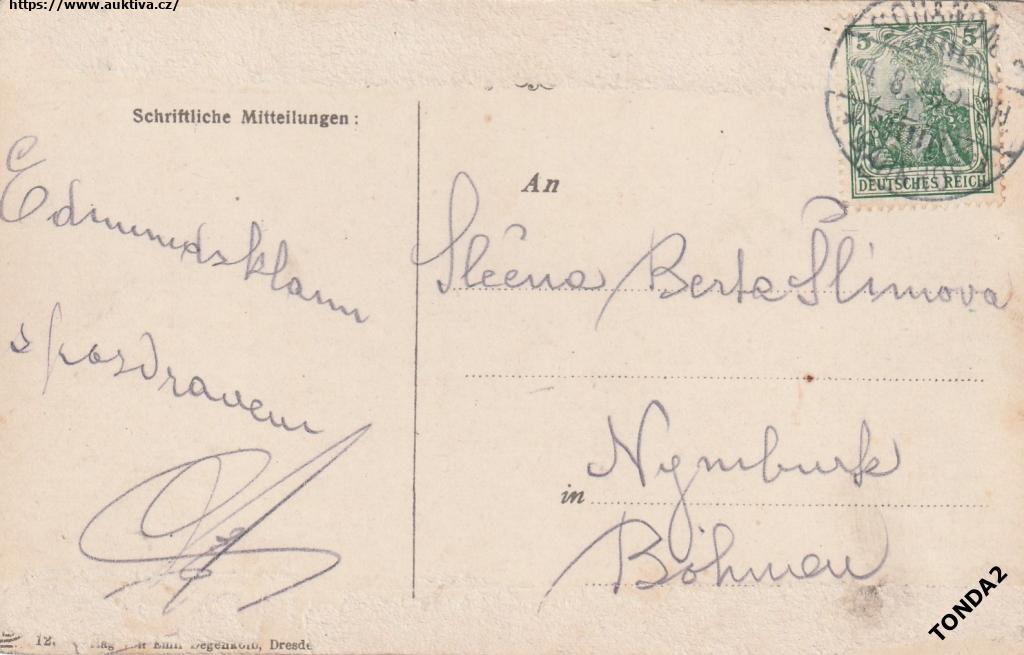 https://www.auktiva.cz/
5 5
DEUTSCHES REICH
Schriftliche Mitteilungen:
Edmundsklam
s pozdravem
An
Slečna Berta Šlimova
in Nymburk
Böhmen
12.
Emil Degenkolb, Dresde
TONDA2